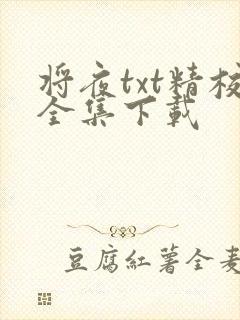 将夜txt精校
全集下载
豆腐红薯全麦